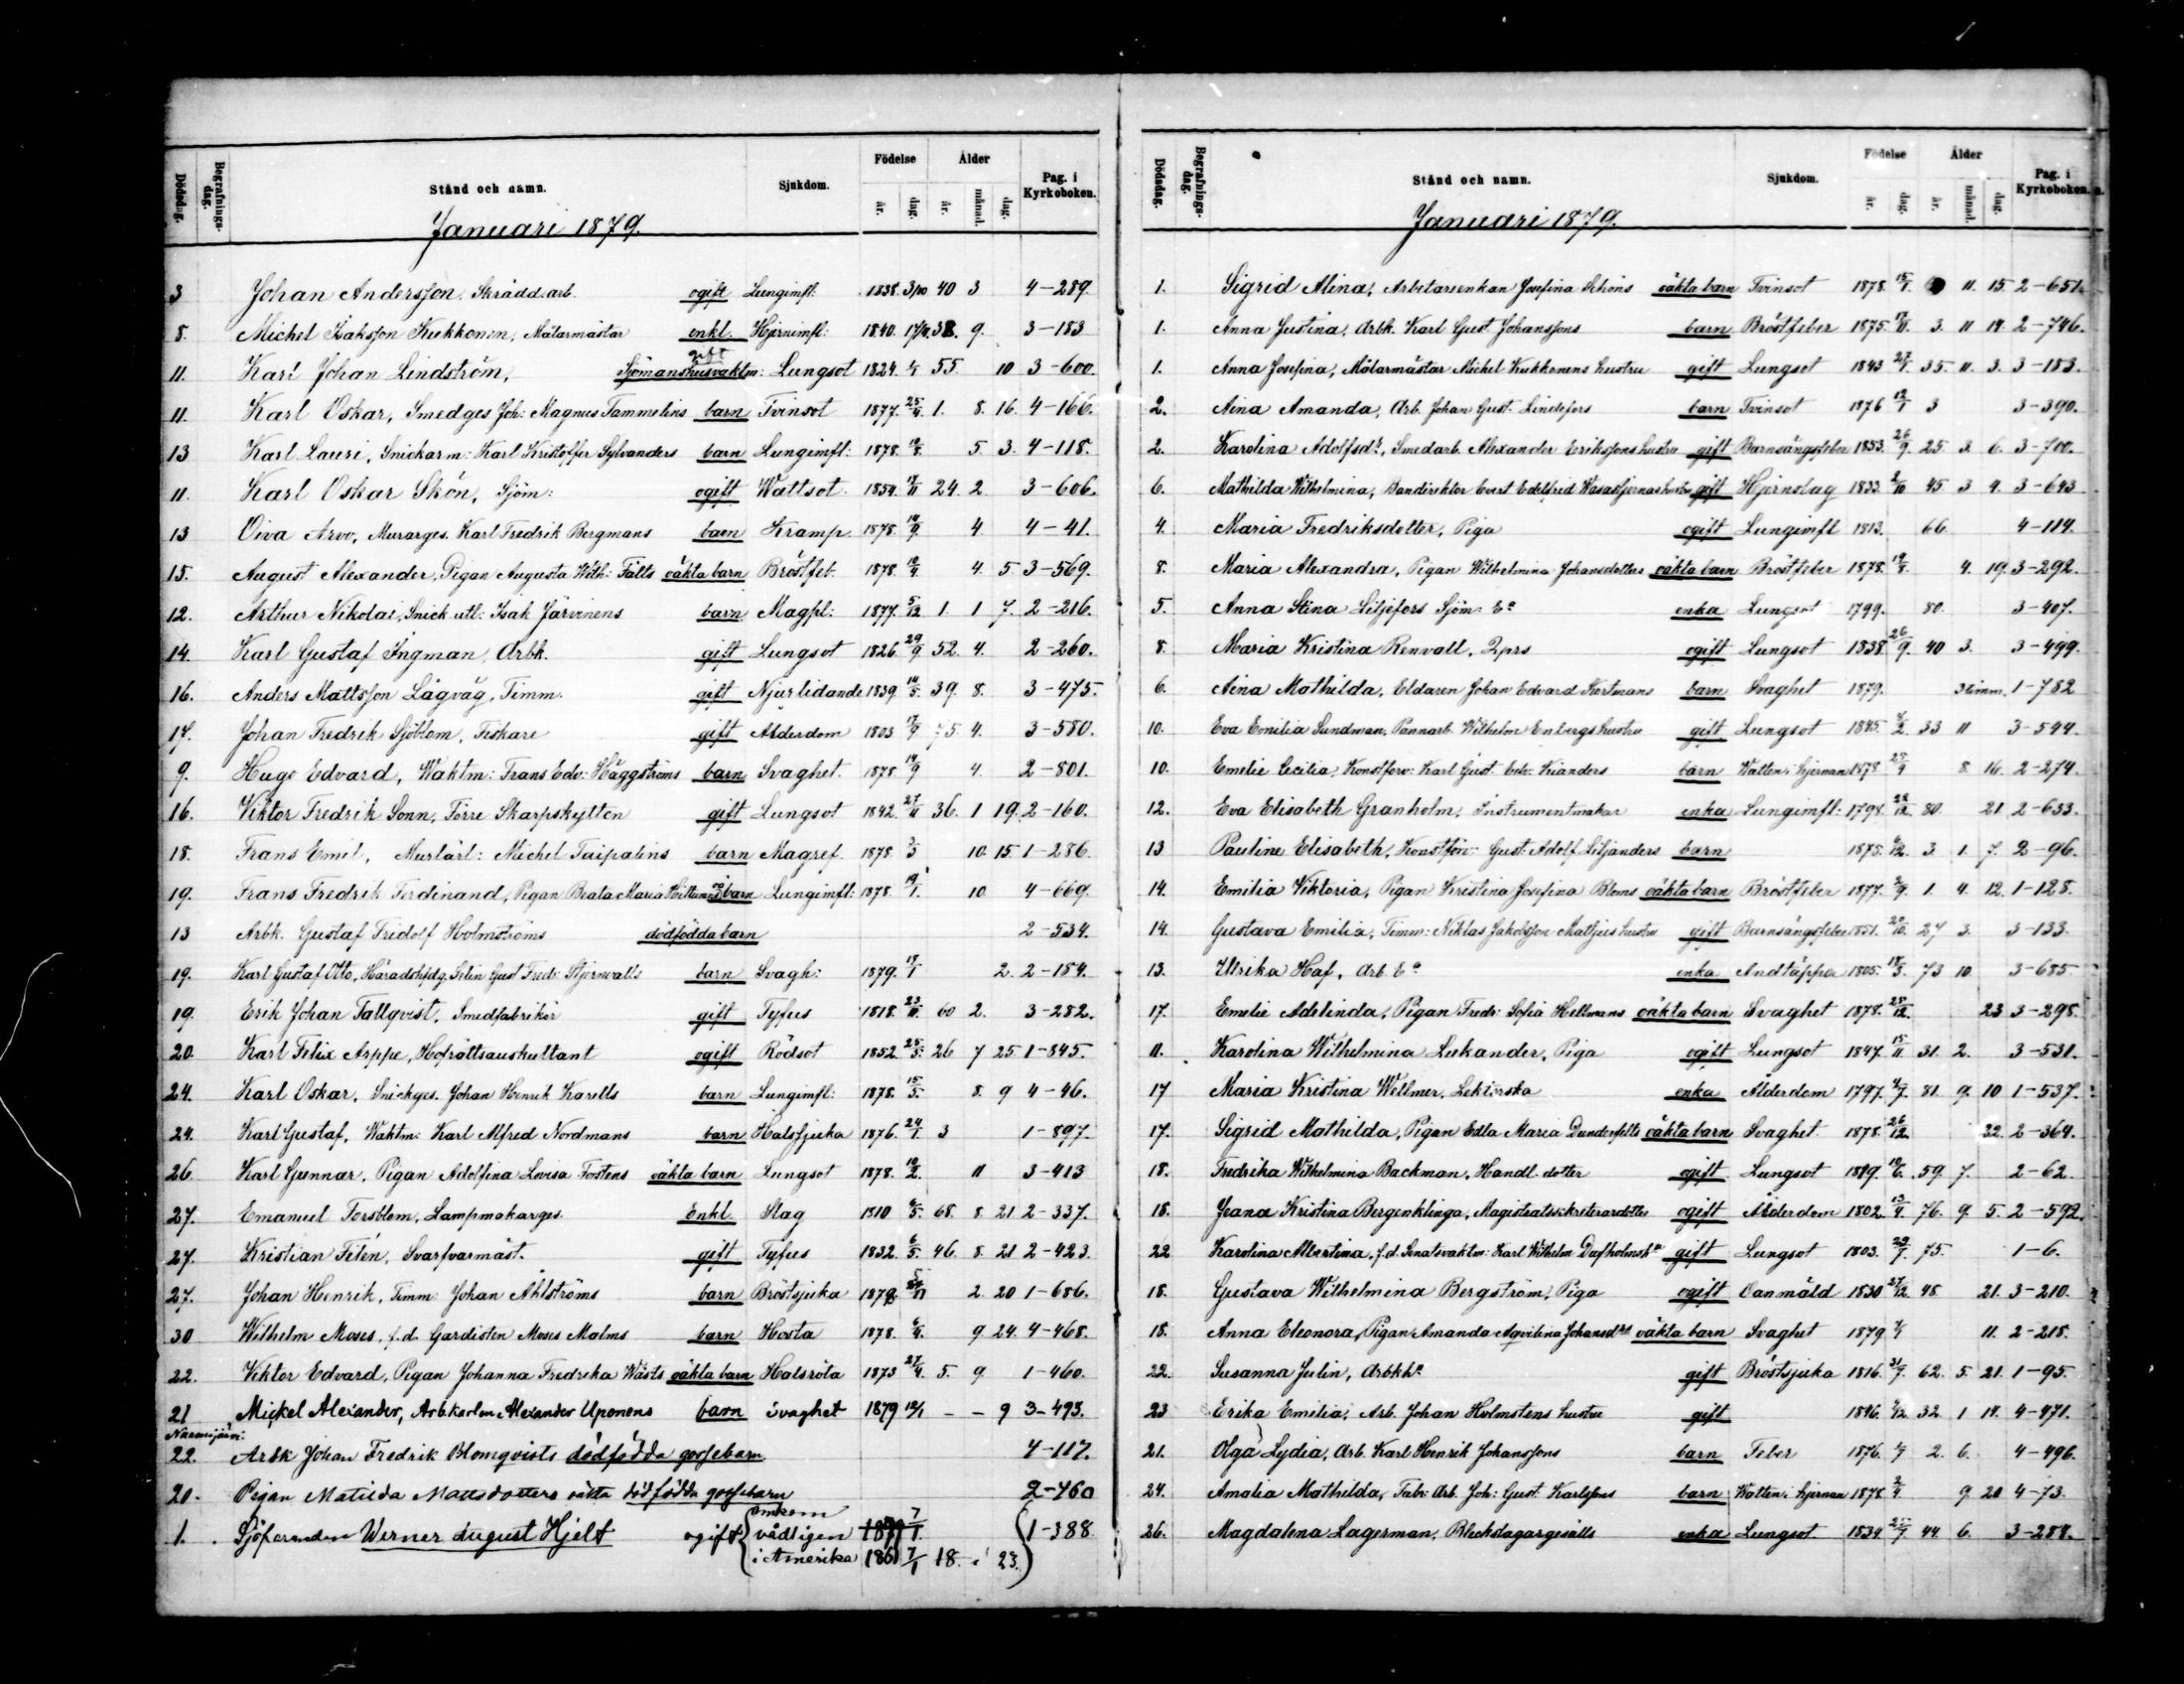 Dödsdag. Begrafningsdag. Stånd och namn. Sjukdom. Födelse år. dag. Ålder år. månad. dag. Pag. i Kyrkoboken.
Januari 1879.
3 Johan Andersson, Skrädd.arb. ogift Lungimfl: 1838. 3/10 40 3 4-289.
8. Michel Isaksson Kukkonen, Målarmästar enkl. Hjernimfl: 1840. 38. 9. 3-183
11. Karl Johan Lindström, Sjömanshusvaktm: gift Lungsot 1824. 55. 10 3-600.
11. Karl Oskar, Smedges Joh: Magnus Tammelins barn Tvinsot 1877. 25/4 1. 8. 16. 4-166.
13 Karl Lauri, Snickarm: Karl Kristoffer Sylvanders barn Lungimfl: 1878. 10/8. 5. 3. 4-118.
11. Karl Oskar Skön, Sjöm: ogift Wattsot. 1854. 17/11 24. 2. 3-606.
13 Oiva Arvo, Murarges. Karl Fredrik Bergmans barn Kramp. 1878. 14/9. 4. 4-41.
15. August Alexander, Pigan Augusta Wilh: Fälts oäkta barn Bröstfeb. 1878. 4. 5 3-569.
12. Arthur Nikolai, Snick utl: Isak Järvinens barn Magfl: 1877. 5/12 1. 1 7. 2-216.
14. Karl Gustaf Ingman, Arbk. gift Lungsot 1826. 29/9 52. 4. 2-260.
16. Anders Mattsson Lågväg, Timm. gift Njurlidande 1839. 14/5. 39. 8. 3-475.
17. Johan Fredrik Sjöblom, Fiskare gift Ålderdom 1803 17/9 75 4. 3-580.
9. Hugo Edvard, Waktm: Frans Edv: Häggströms barn Svaghet. 1878. 14/9 4. 2-801.
16. Viktor Fredrik Sonn, Förre Skarpskytten gift Lungsot 1842. 27/11 36. 1 19. 2-160.
18. Frans Emil, Murlärl: Michel Taipalins barn Magref. 1878. 3/3 10. 15 1-286.
19. Frans Fredrik Ferdinand, Pigan Beata Maria oä barn Lungimfl: 1878. 19/1. 10. 4-669.
13 Arbk. Gustaf Fridolf Holmströms dödfödda barn 2-534.
19. Karl Gustaf Otto, Häradshfdg. Gust Fredr: Stjernvalls barn Svagh: 1879. 17/1 2. 2-184.
19. Erik Johan Tallqvist, Smedfabrikör gift Tyfus 1818. 23/11. 60 2. 3-282.
20. Karl Felix Arppe, Hofrättsauskultant ogift Rödsot 1852. 25/5. 26 7 25 1-845.
24. Karl Oskar, Snickges. Johan Henrik Karells barn Lungimfl: 1878. 15/5. 8. 9 4-46.
24. Karl Gustaf, Waktm: Karl Alfred Nordmans barn Halssjuka 1876. 24/1. 3 1-897.
26 Karl Gunnar, Pigan Adolfina Lovisa Forstens oäkta barn Lungsot 1878. 10/2. 11 3-413
27. Emanuel Forsblom, Lampmakarges. Enkl. Slag 1810 6/5. 68. 8. 21 2-337.
27. Kristian Felén, Svarfvarmäst. gift Tyfus 1832. 6/5. 46. 8. 21 2-423.
27. Johan Henrik, Timm: Johan Åhlströms barn Bröstsjuka 1878. 2. 20 1-686.
30 Wilhelm Moses, f.d. Gardisten Moses Malms barn Hosta 1878. 6/4. 9 24. 4-468.
22. Viktor Edvard, Pigan Johanna Fredrika Wästs oäkta barn Halsröta 1873 27/4. 5. 9. 1-460.
21 Mickel Alexander, Arbkarlen Alexander Uponens barn Svaghet 1879 12/1 - - 9 3-493.
Nurmijärvi:
22. Arbk Johan Fredrik Blomqvists dödfödda gossebarn 4-117.
20. Pigan Matilda Mattsdotters oäkta dödfödda gossebarn 2-460
1. Sjöfaranden Werner August Hjelt ogift omkom vådligen i Amerika 1879 7/1. 1861 7/1 18. 23. 1-388
Dödsdag. Begrafningsdag. Stånd och namn. Sjukdom. Födelse år. dag. Ålder år. månad. dag. Pag. i Kyrkoboken.
Januari 1879.
1. Sigrid Alina, Arbetareenkan Josefina Schöns oäkta barn Tvinsot 1878. 15/1. 11. 15 2-651.
1. Anna Justina, Arbk. Karl Gust. Johanssons barn Bröstfeber 1875. 3. 11 14. 2-746.
1. Anna Josefina, Målarmästar Michel Kukkonens hustru gift Lungsot 1843 27/1. 35. 11. 3. 3-183.
2. Aina Amanda, Arb. Johan Gust. Lindefors barn Tvinsot 1876 12/1 3 3-390.
2. Karolina Adolfsdr, Smedarb. Alexander Erikssons hustru gift Barnsängsfeber 1853. 26/9. 25 3. 6. 3-700.
6. Mathilda Wilhelmina, Bandirektor Evert Edelfrid Wasastjernas hustru gift Hjernslag 1833. 2/10 45 3 4. 3-643
4. Maria Fredriksdotter, Piga ogift Lungimfl 1813. 66. 4-114.
8. Maria Alexandra, Pigan Wilhelmina Johansdotters oäkta barn Bröstfeber 1878. 19/8. 4. 19. 3-292.
5. Anna Stina Liljefors Sjöm: Ea enka Lungsot 1799. 80. 3-407.
8. Maria Kristina Renvall, Qprs ogift Lungsot 1838. 26/9. 40 3. 3-499.
6. Aina Mathilda, Eldaren Johan Edvard Kortmans barn Svaghet 1879. 3 timm. 1-782
10. Eva Emilia Sundman, Pannarb. Wilhelm Enbergs hustru gift Lungsot 1845. 33 11 3-544.
10. Emelie Cecilia, Konstförv: Karl Gust. Edv: Kianders barn Watten i hjernan 1878. 25/4 8. 16. 2-274.
12. Eva Elisabeth Granholm, Instrumentmakar enka Lungimfl: 1798. 22/12. 80. 21 2-633.
13 Pauline Elisabeth, Konstförv: Gust. Adolf Liljanders barn 1875. 6/12. 3. 1. 7. 2-96.
14. Emilia Viktoria, Pigan Kristina Josefina Bloms oäkta barn Bröstfeber 1877. 2/9. 1. 4. 12. 1-128.
14. Gustava Emilia, Timm: Niklas Jakobsson hustru gift Barnsängsfeber 1851. 20/10. 27 3. 3-133.
13. Ulrika Haf, Arb. Ea enka Andtäppa 1805. 18/3. 73 10. 3-685
17. Emelie Adelinda, Pigan Fredr: Sofia Hellmans oäkta barn Svaghet 1878. 25/12. 23 3-298.
11. Karolina Wilhelmina Lukander, Piga ogift Lungsot 1847. 15/11. 31. 2. 3-531.
17 Maria Kristina Wellmer, Lektorska enka Ålderdom 1797. 81. 9. 10 1-537.
17. Sigrid Mathilda, Pigan Edla Maria Dunderfelts oäkta barn Svaghet. 1878. 26/12. 22. 2-364.
18. Fredrika Wilhelmina Backman, Handl. dotter ogift Lungsot 1819. 10/6. 59. 7. 2-62.
18. Jeana Kristina Bergenklinga, Magistratssekreterardotter ogift Ålderdom 1802. 13/4. 76. 9. 5. 2-592.
22 Karolina Albertina, f.d. Senatsvaktm: Karl Wilhelm gift Lungsot 1803. 75. 1-6.
18. Gustava Wilhelmina Bergström, Piga ogift Oanmäld 1830 27/12. 48. 21. 3-210.
18. Anna Eleonora, Pigan Amanda Aqvilina Johansdrs oäkta barn Svaghet 1879. 7/1 11. 2-218.
22. Susanna Julin, Arbkha gift Bröstsjuka 1816. 31/7. 62. 5. 21. 1-95.
23 Erika Emilia, Arb. Johan Holmstens hustru gift 1846. 32. 1 18. 4-471.
21. Olga Lydia, Arb. Karl Henrik Johanssons barn Feber 1876. 2. 6. 4-496.
24. Amalia Mathilda, Fabr: Arb. Joh: Gust. Karlssons barn Watten i hjernan 1878. 9. 20 4-73.
26. Magdalena Lagerman, Bleckslagargesälls enka Lungsot 1834. 44. 6. 3-288.